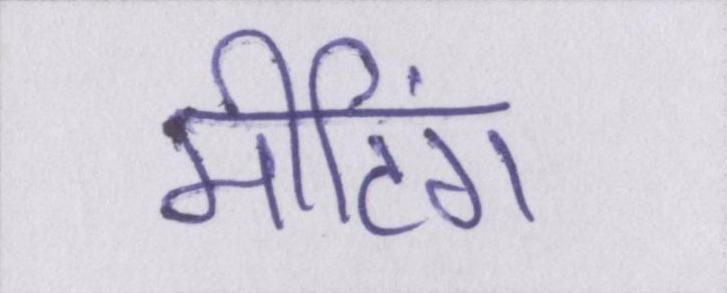 मीटिंग